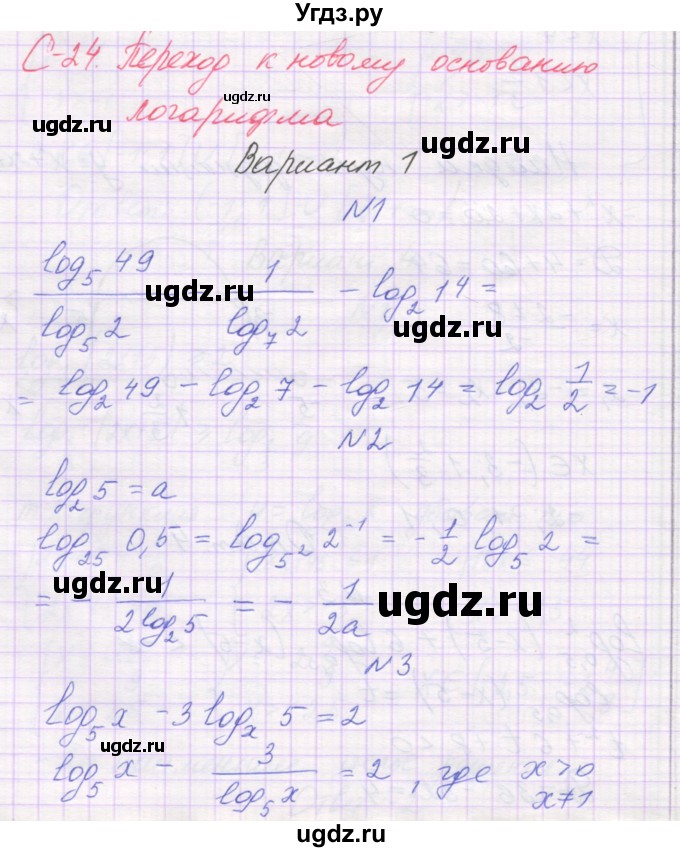 Угдз.ру
С-24. Переход к новому основанию
ugdz.ru
логарифма
ugdz.ru
ugdz.ru
Вариант 1
№1
log₅ 49 / log₅ 2 1 / log₇ 2 − log₂ 14 =
ugdz.ru
ugdz.ru
= log₂ 49 − log₂ 7 − log₂ 14 = log₂ 1/2 = −1
№2
log₂ 5 = a
log₂₅ 0,5 = log₅² 2⁻¹ = −1/2 log₅ 2 =
ugdz.ru
ugdz.ru
= − 1 / 2log₂ 5 = − 1 / 2a
№3
log₅ x − 3 logₓ 5 = 2
ugdz.ru
ugdz.ru
log₅ x − 3 / log₅ x = 2, где x>0
x≠1
ugdz.ru